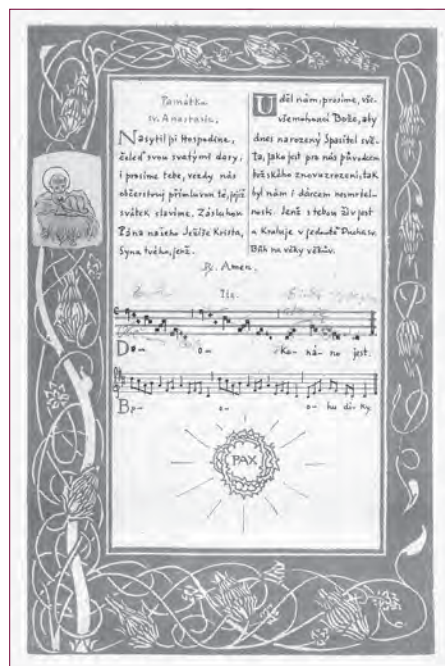 Památka
sv. Anastasie.
Nasytil jsi Hospodine,
čeleď svou svatými dary,
i prosíme tebe, vždy nás
občerstvuj přímluvou té, jejíž
svátek slavíme. Zásluhou
Pána našeho Ježíše Krista,
Syna tvého, jenž.
Uděl nám, prosíme, vše-
všemohoucí Bože, aby
dnes narozený Spasitel svě-
ta, jako jest pro nás původcem
božského znovuzrození, tak
byl nám i dárcem nesmrtel-
nosti. Jenž s tebou živ jest
a kraluje v jednotě Ducha sv.
Bůh na věky věkův.
℟. Amen.
Do- o- Ko- ná- no jest.
Bo- o- o- hu dí- ky.
PAX